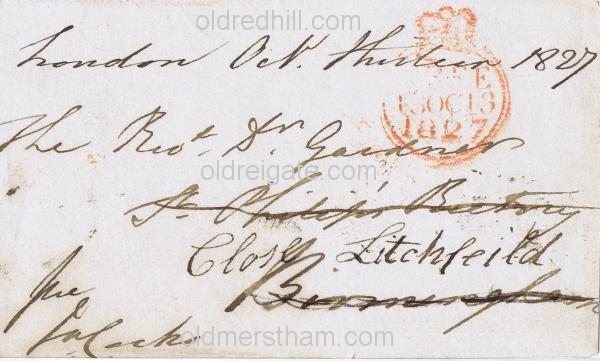 oldredhill.com
London Octr. thirteen 1827
FREE
13 OC 13
1827
The Revd. Dr. Gardner
oldreigate.com
St. Philip's Rectory
Close Litchfeild
Birmingham
free
Js. Cocks
oldmerstham.com